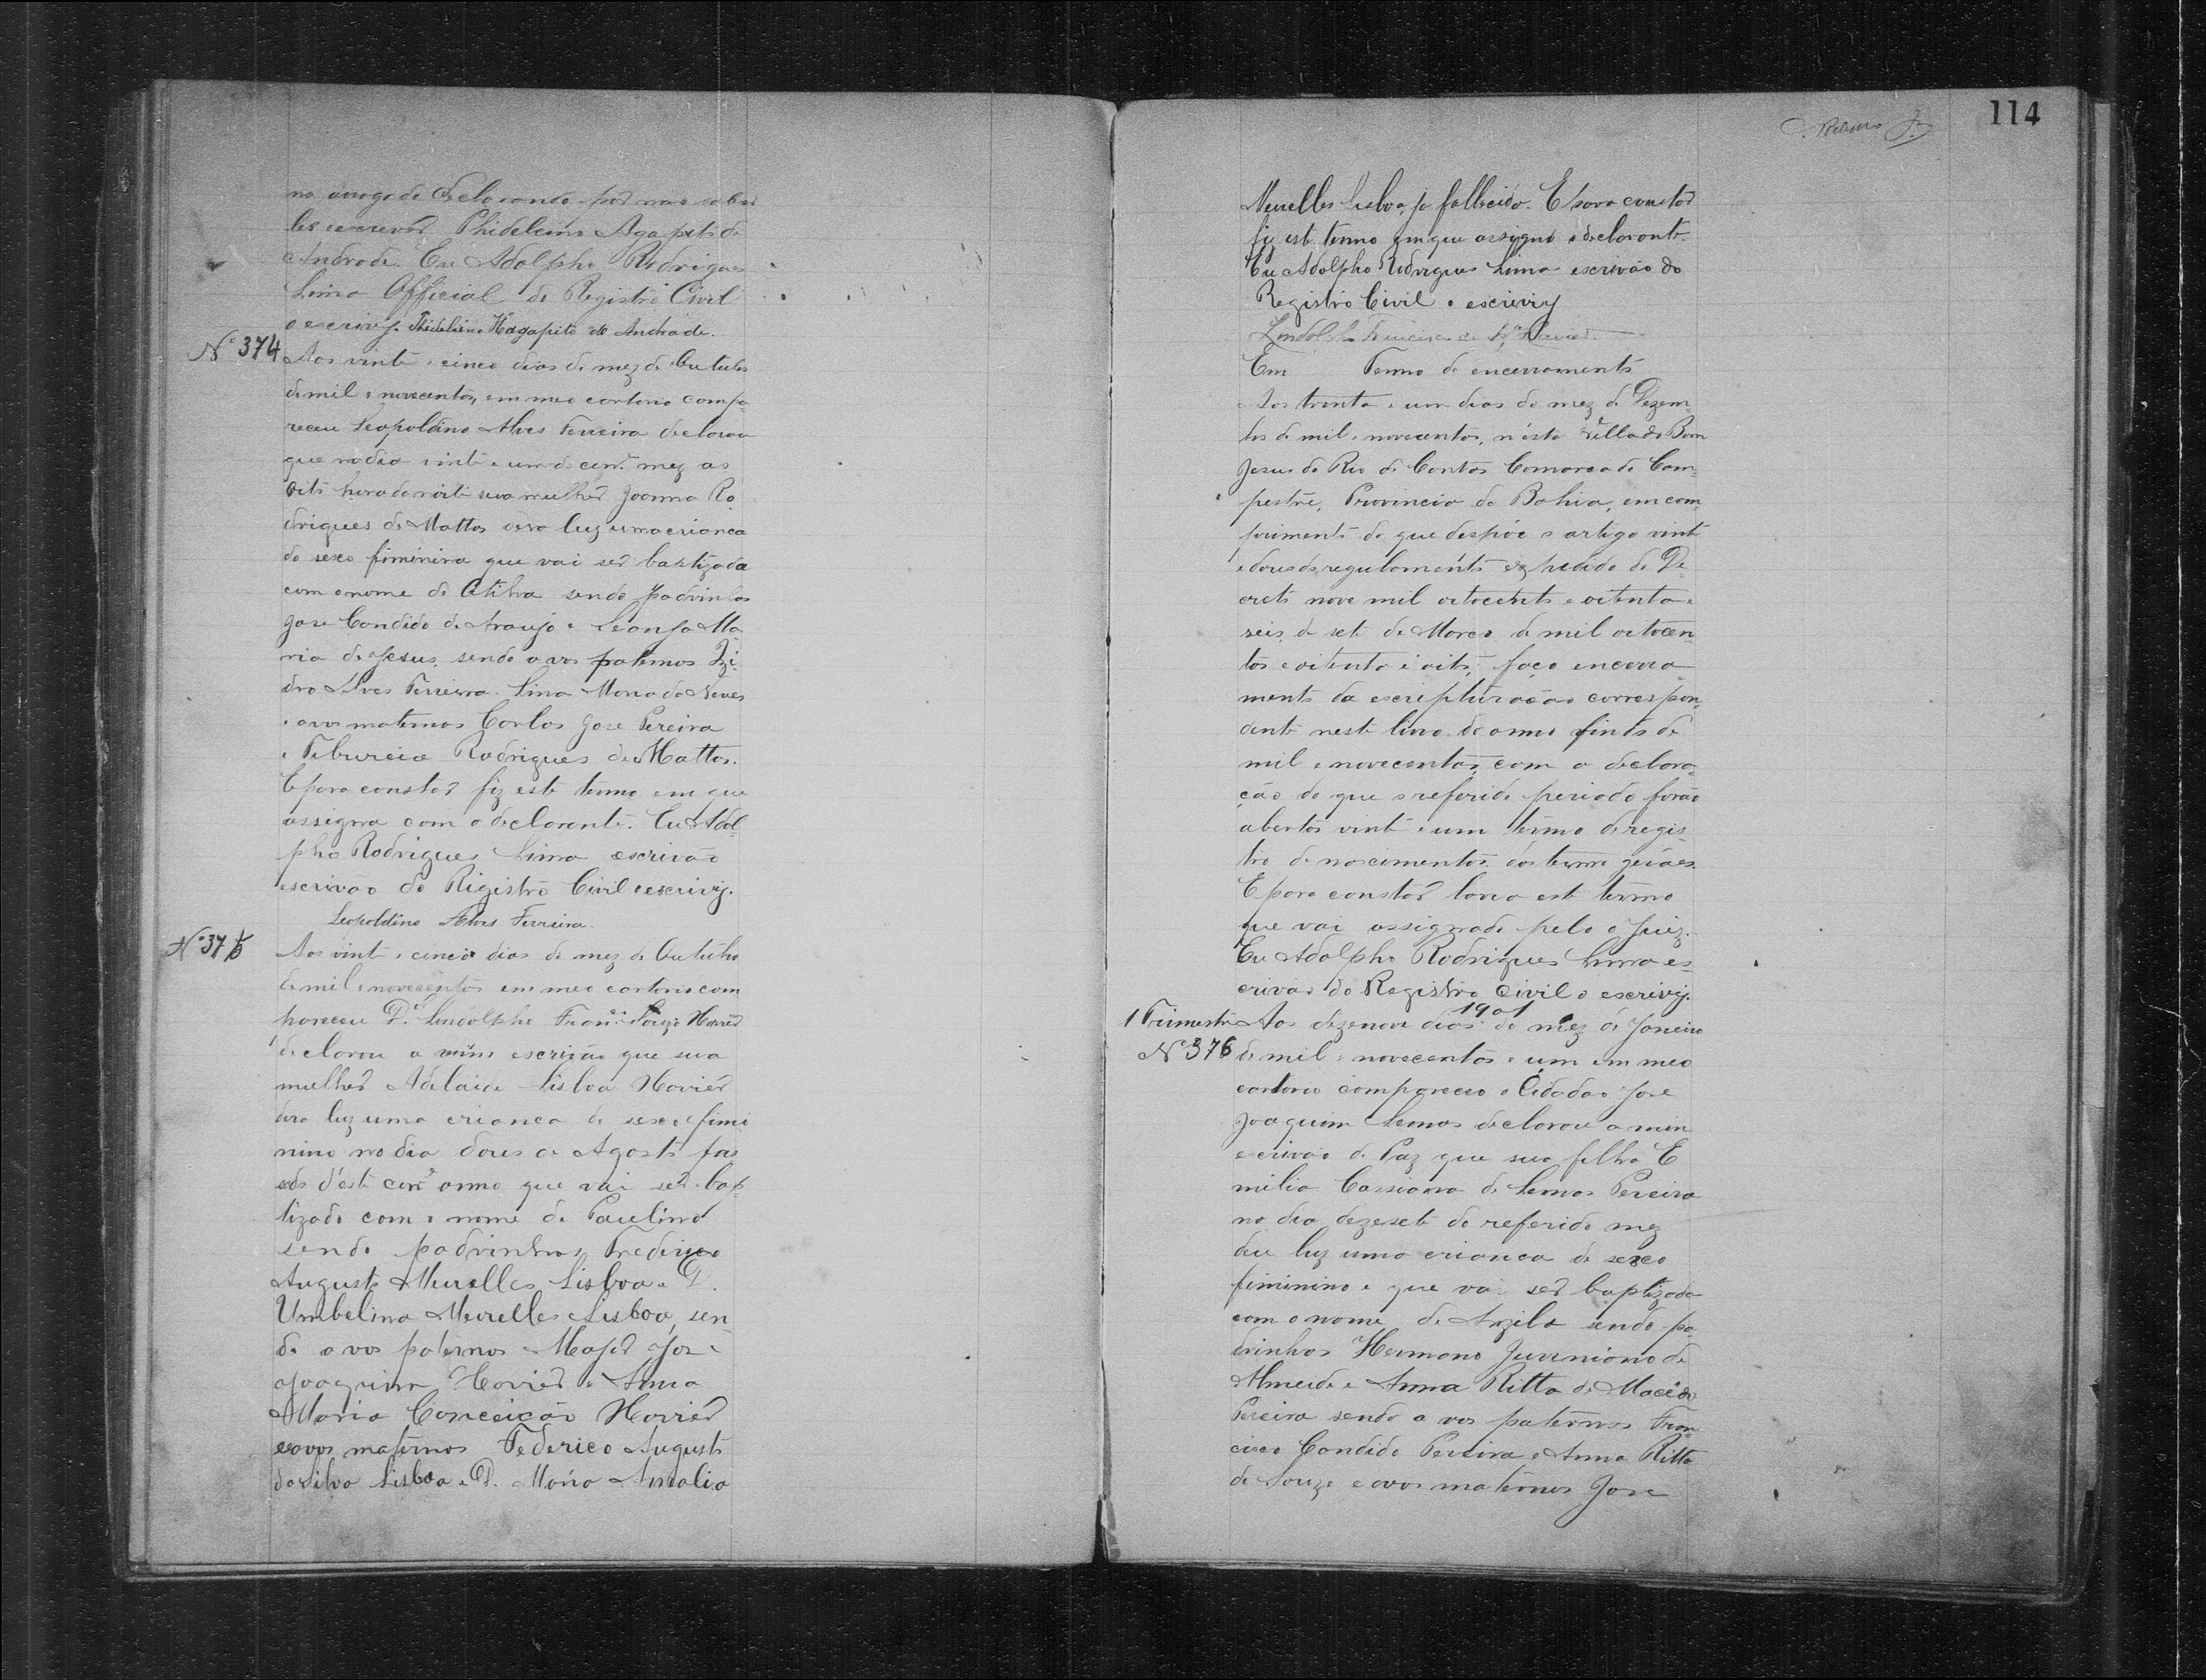 no arrogo do declarando por nao saber
ler escrever Phideleino Agapito de
Andrade. Eu Adolpho Rodrigues
Lima Official do Registro Civil
o escrivy. Phideleino Hagapito de Andrade.
Nº 374
Aos vinte e cinco dias do mez de Outubro
de mil e novecentos, em meo cartorio compa-
receu Leopoldino Alves Ferreira declarou
que no dia vinte e um do corr.e mez as
oito hora da noite sua mulher Joanna Ro-
drigues de Mattos dera luz uma crianca
do sexo fiminina que vai ser baptizada
com o nome de Otilia sendo padrinhos
Jose Candido de Araujo e Leonja Ma-
ria de Jesus, sendo avos paternos Izi-
dro Alves Ferreira Lina Maria das Neves
e avos maternos Carlos Jose Pereira
e Teburcia Rodrigues de Mattos.
E para constar fiz este termo em que
assigna com o declarante. Eu Adol-
pho Rodrigues Lima escrivão
escrivão do Rigistro Civil o escrivy.
Leopoldino Alves Ferreira.
Nº 375
Aos vinte e cinco dias do mez de Outubro
de mil e novecentos em meo cartorio com
pareceu Dr. Lindolpho Fran.co Souza Havier
declarou a mim escrivão que sua
mulher Adelaide Lisboa Havier
dera luz uma crianca do sexo fimi
nino no dia dous de Agosto pas
sado d'este corr.e anno que vai ser bap-
tizado com o nome de Paulino
sendo padrinhos Frederico
Augusto Meirelles Lisboa e D.
Umbelina Meirelles Lisboa, sen-
do avos paternos Major Jose
Joaquim Havier e Anna
Maria Conceição Havier
e avos maternos Federico Augusto
da Silva Lisboa e D. Maria Amalia
114
Meirelles Lisboa, ja fallecido. E para constar
fiz este termo em que assigno o declarante.
Eu Adolpho Rodrigues Lima escrivão do
Registro Civil o escriviy
Lindolpho Francisco de Xavier
Em Termo de encerramento
Aos trinta e um dias do mez de Dezem-
bro de mil e novecentos, n'esta Villa do Bom
Jesus do Rio de Contas Comarca de Cam-
pestre, Provincia da Bahia, em com-
primento do que despõe o artigo vinte
e dous do regulamento expedido do De-
creto nove mil oitocento e oitenta e
seis, de sete de Março de mil oitocen-
tos e oitenta e oito, faço encerra-
mento da escrepturação correspon-
dente neste livro do anno findo de
mil e novecentos, com a declara-
ção do que o referido periodo forão
abertos vinte e um termo de regis-
tro de nascimentos dos termo gerães.
E para constar lavro est termo
que vai assignado pelo o Juiz.
Eu Adolpho Rodrigues Lima es-
crivão do Registro Civil o escrivy.
1901
1 Trimestre
Nº 376
Aos dezenove dias do mez de Janeiro
de mil e novecentos e um em meo
cartorio compareceo o Cidadão Jose
Joaquim Lemos declarou a mim
escrivão de Paz que sua filha E
milia Cassiana de Lemos Pereira
no dia dezesete do referido mez
deu luz uma crianca do sexo
fiminino e que vai ser baptizada
com o nome de Azila sendo pa-
drinhos Hermano Juviniano de
Almeida e Anna Ritta de Macêdo
Pereira sendo avos paternos Fran-
cisco Candido Pereira e Anna Ritta
de Souza e avos maternos Jose